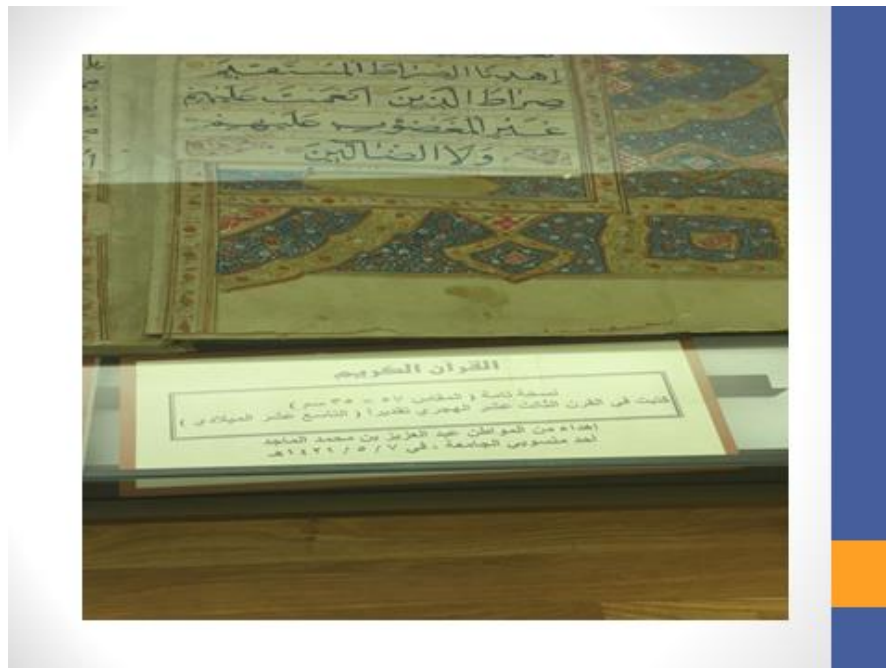 اهدنا الصراط المستقيم
صراط الذين انعمت عليهم
غير المغضوب عليهم
ولا الضالين
القرآن الكريم
نسخة تامة ( المقاس ٥٧ × ٣٥ سم )
كتبت في القرن الثالث عشر الهجري تقديرا ( التاسع عشر الميلادي )
إهداء من المواطن عبد العزيز بن محمد الماجد
أحد منسوبي الجامعة ، في ١٤٢١/٥/٧هـ